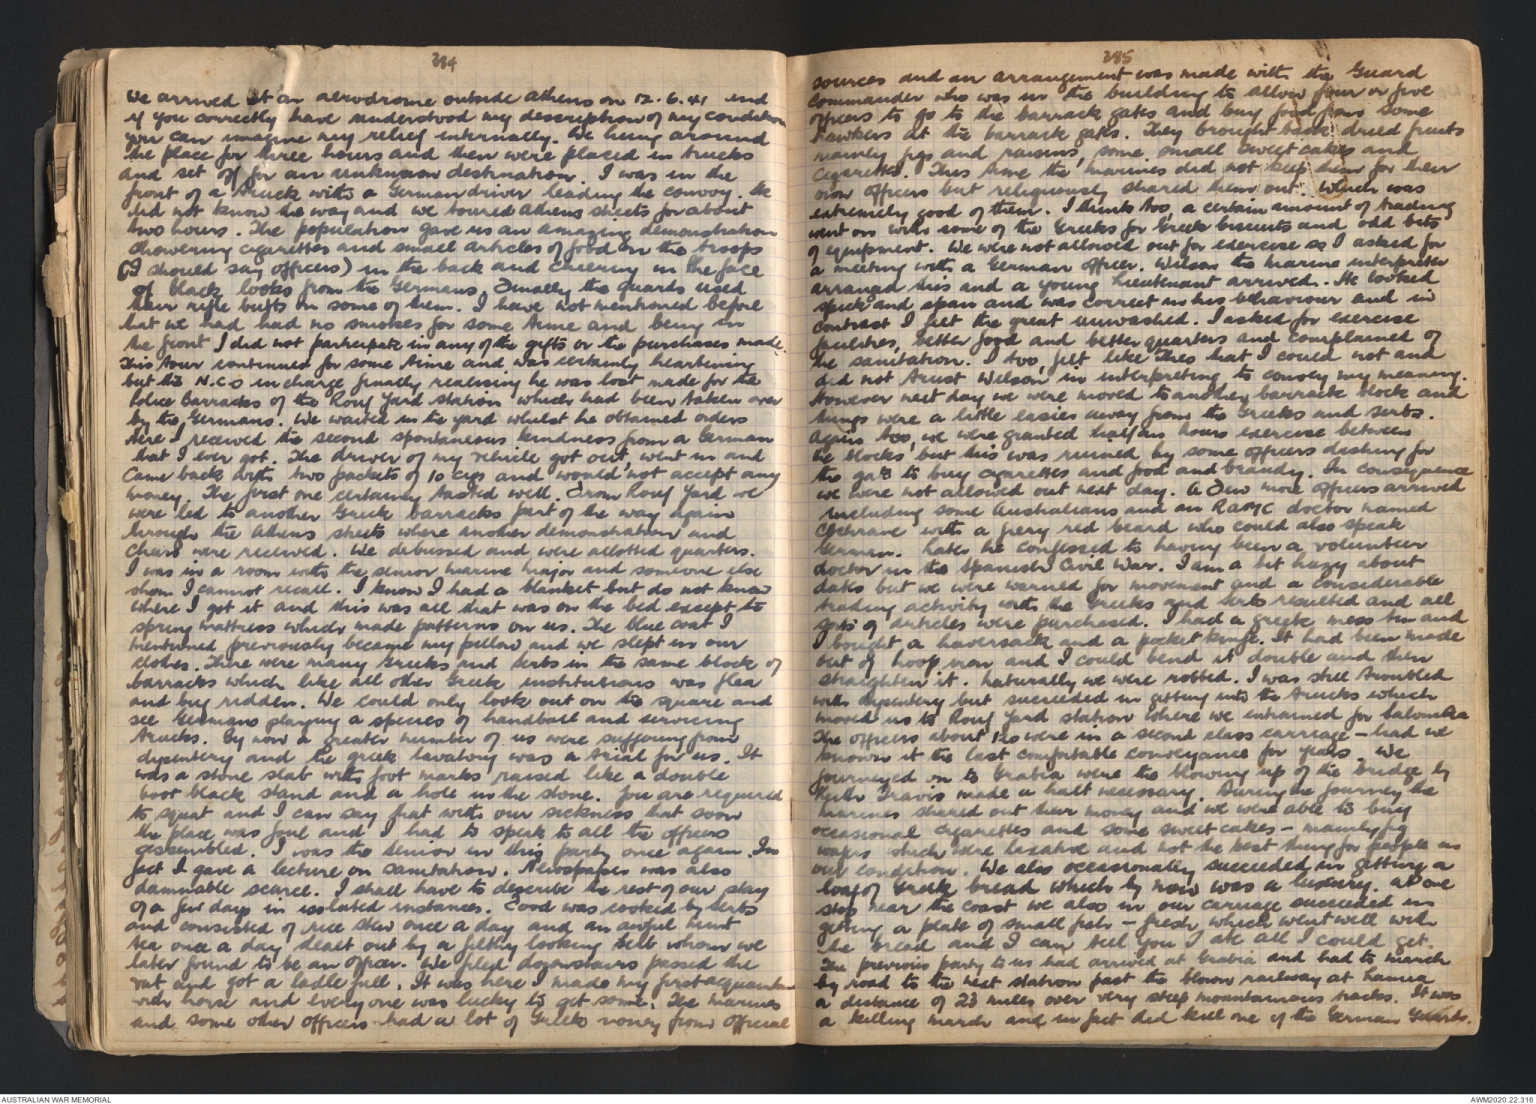 284
We arrived at an aerodrome outside Athens on 12.6.41 and
if you correctly have understood my description of my condition
you can imagine my relief internally. We hung around
the place for three hours and then were placed in trucks
and set off for an unknown destination. I was in the
front of a truck with a German driver leading the convoy. He
did not know the way and we toured Athens streets for about
two hours. The population gave us an amazing demonstration
showering cigarettes and small articles of food on the troops
(I should say officers) in the back and cheering in the face
of black looks from the Germans. Finally the guards used
their rifle butts on some of them. I have not mentioned before
that we had had no smokes for some time and being in
the front I did not participate in any of the gifts or the purchases made.
This tour continued for some time and was certainly heartening
but the N.C.O in charge finally realising he was lost made for the
Police Barracks of the Rouf Yard station which had been taken over
by the Germans. We waited in the yard whilst he obtained orders
Here I received the second spontaneous kindness from a German
that I ever got. The driver of my vehicle got out, went in and
came back with two packets of 10 cigs and would not accept any
money. The first one certainly tasted well. From Rouf Yard we
were led to another Greek barracks part of the way again
through the Athens streets where another demonstration and
cheers were received. We debussed and were allotted quarters.
I was in a room with the senior marine major and someone else
whom I cannot recall. I know I had a blanket but do not know
where I got it and this was all that was on the bed except the
spring mattress which made patterns on us. The blue coat I
mentioned previously became my pillow and we slept in our
clothes. There were many Greeks and Serbs in the same block of
barracks which like all other Greek institutions was flea
and bug ridden. We could only look out on the square and
see Germans playing a species of handball and servicing
trucks. By now a greater number of us were suffering from
dysentery and the Greek lavatory was a trial for us. It
was a stone slab with foot marks raised like a double
boot black stand and a hole in the stone. You are required
to squat and I can say that with our sickness that soon
the place was foul and I had to speak to all the officers
assembled. I was the senior in this party once again. In
fact I gave a lecture on sanitation. Newspaper was also
damnable scarce. I shall have to describe the rest of our stay
of a few days in isolated instances. Food was cooked by Serbs
and consisted of rice stew once a day and an awful mint
tea once a day dealt out by a filthy looking Serb whom we
later found to be an officer. We filed downstairs passed the
vat and got a ladle full. It was here I made my first acquaintance
with horse and everyone was lucky to get some. The marines
and some other officers had a lot of Greek money from official
285
sources and an arrangement was made with the Guard
Commander who was in the building to allow four or five
officers to go to the barrack gates and buy food from some
hawkers at the barrack gates. They brought back dried fruits
mainly figs and raisins, some small sweet cakes and
cigarettes. This time the marines did not keep them for their
own officers but religiously shared them out. Which was
extremely good of them. I think too, a certain amount of trading
went on with some of the Greeks for Greek biscuits and odd bits
of equipment. We were not allowed out for exercise so I asked for
a meeting with a German officer. Wilson the marine interpreter
arranged this and a young Lieutenant arrived. He looked
spick and span and was correct in his behaviour and in
contrast I felt the great unwashed. I asked for exercise
facilities, better food and better quarters and complained of
the sanitation. I too, felt like this that I could not and
did not trust Wilson in interpreting to convey my meaning.
However next day we were moved to another barrack block and
things were a little easier away from the Greeks and Serbs.
Again too, we were granted half an hours exercise between
the blocks but this was ruined by some officers dashing for
the gate to buy cigarettes and food and brandy. In consequence
we were not allowed out next day. A few more officers arrived
including some Australians and an RAMC doctor named
Cochrane with a fiery red beard who could also speak
German. Later he confessed to having been a volunteer
doctor in the Spanish Civil War. I am a bit hazy about
dates but we were warned for movement and a considerable
trading activity with the Greeks and Serbs resulted and all
sorts of articles were purchased. I had a greek mess tin and
I bought a haversack and a pocket knife. It had been made
out of hoop iron and I could bend it double and then
straighten it. Naturally we were robbed. I was still troubled
with dysentery but succeeded in getting into the trucks which
moved us to Rouf Yard station where we entrained for Salonika
The officers about 120 were in a second class carriage – had we
known it the last comfortable conveyance for years. We
journeyed on to Grabia were the blowing up of the bridge by
Keith Travis made a halt necessary. During the journey the
marines shared out their money and we were able to buy
occasional cigarettes and some sweet cakes – mainly fig
wafers which were laxative and not the best thing for people in
our condition. We also occasionally succeeded in getting a
loaf of Greek bread which by now was a luxury. At one
stop near the coast we also in our carriage succeeded in
getting a plate of small fish – fresh which went well with
the bread and I can tell you I ate all I could get.
The previous party to us had arrived at Grabia and had to march
by road to the next station past the blown railway at Lamia
a distance of 23 miles over very steep mountainous tracks. It was
a killing march and in fact did kill one of the German Guards.
AUSTRALIAN WAR MEMORIAL
AWM2020.22.316